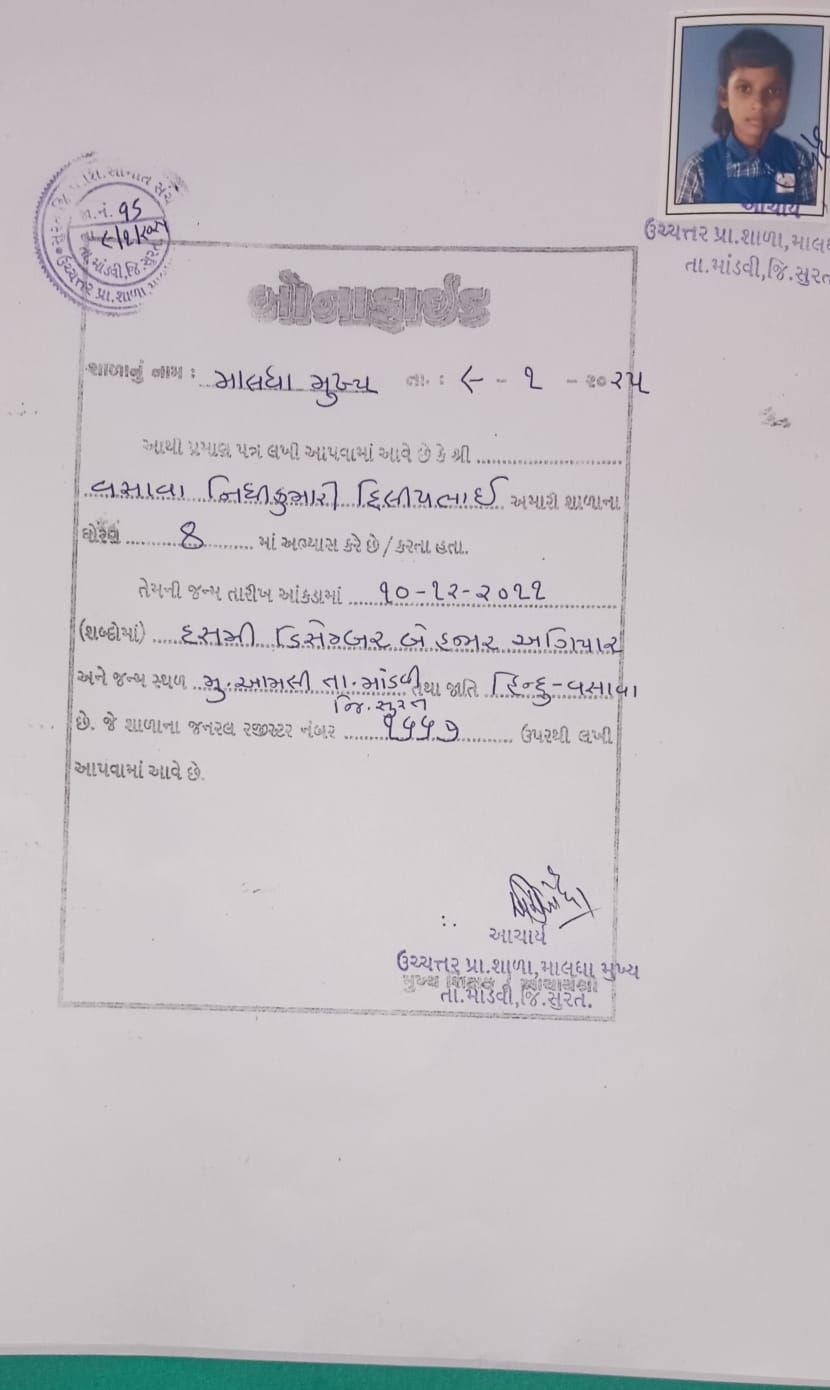 આચાર્ય
ઉચ્ચત્તર પ્રા.શાળા,માલધ
તા.માંડવી,જિ.સુરત
જા.નં. ૧૬
તા.માંડવી,જિ.સુરત
ઉચ્ચત્તર પ્રા.શાળા
બોનાફાઈડ
શાળાનું નામ : માલધા મુખ્ય તા. : ૯ - ૧ - ૨૦૨૫
આથી પ્રમાણ પત્ર લખી આપવામાં આવે છે કે શ્રી
વસાવા નિધીકુમારી દિલીપભાઈ અમારી શાળાના
ધોરણ 8 માં અભ્યાસ કરે છે / કરતા હતા.
તેમની જન્મ તારીખ આંકડામાં ૧૦-૧૨-૨૦૧૧
(શબ્દોમાં) દસમી ડિસેમ્બર બે હજાર અગિયાર
અને જન્મ સ્થળ મુ.આમલી તા.માંડવી તથા જાતિ હિન્દુ-વસાવા
જિ.સુરત
છે. જે શાળાના જનરલ રજીસ્ટર નંબર ૧૫૫૭ ઉપરથી લખી
આપવામાં આવે છે.
આચાર્ય
ઉચ્ચત્તર પ્રા.શાળા,માલધા મુખ્ય
મુખ્ય શિક્ષક / આચાર્યશ્રી
તા.માંડવી,જિ.સુરત.